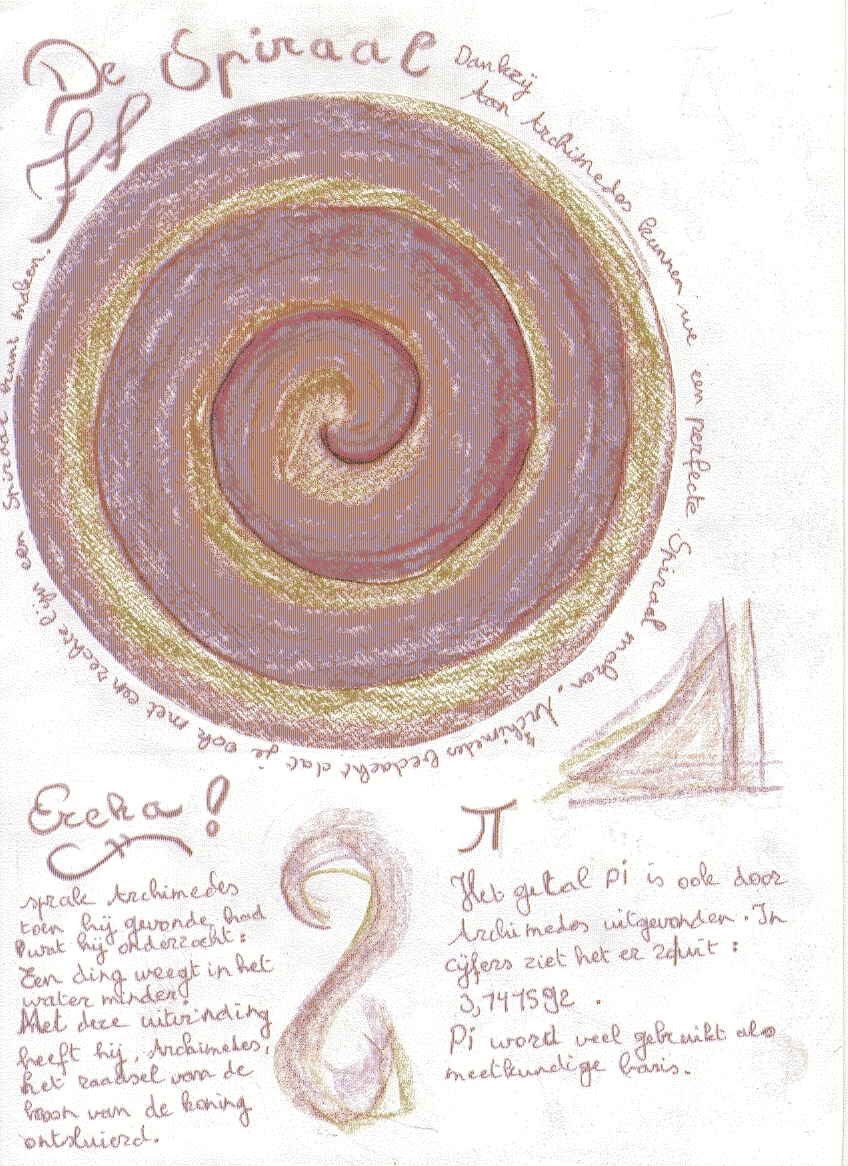 De Spiraal
Dankzij
aan Archimedes kunnen we een perfecte Spiraal maken, Archimedes bedacht dat je ook met een rechte lijn een Spiraal kunt maken.
Ereka!
sprak Archimedes
toen hij gevonde had
wat hij onderzocht:
Een ding weegt in het
water minder!
Met deze uitvinding
heeft hij, Archimedes,
het raadsel van de
kroon van de koning
ontsluierd.
π
Het getal pi is ook door
Archimedes uitgevonden. In
cijfers ziet het er zo uit:
3,141592.
Pi word veel gebruikt als
meetkundige basis.